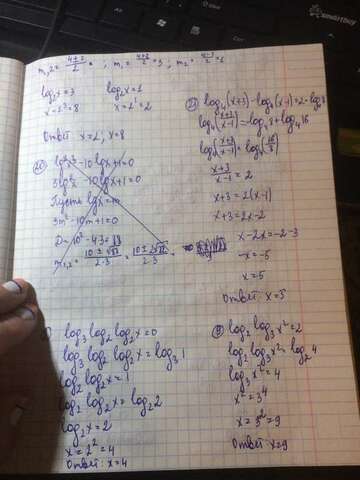 m₁,₂ = (4±2)/2 = ; m₁ = (4+2)/2 = 3 ; m₂ = (4-2)/2 = 1
log₂x = 3 log₂x = 1
x = 2³ = 8 x = 2¹ = 2
Ответ: x = 2, x = 8
lg²x³ - 10lgx + 1 = 0
9lg²x - 10lgx + 1 = 0
Пусть lgx = m
9m² - 10m + 1 = 0
log₄(x+3) - log₄(x-1) = 2 - log₄8
log₄((x+3)/(x-1)) = -log₄8 + log₄16
log₄((x+3)/(x-1)) = log₄(16/8)
(x+3)/(x-1) = 2
x+3 = 2(x-1)
x+3 = 2x-2
x-2x = -2-3
-x = -5
x = 5
Ответ: x = 5
log₃log₂log₂x = 0
log₃log₂log₂x = log₃1
log₂log₂x = 1
log₂log₂x = log₂2
log₂x = 2
x = 2² = 4
Ответ: x = 4
log₂log₃x² = 2
log₂log₃x² = log₂4
log₃x² = 4
x² = 3⁴
x = 3² = 9
Ответ: x = 9